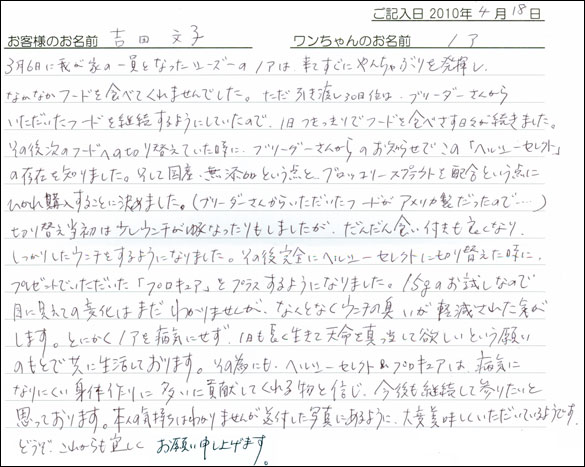 ご記入日 2010年 4月 18日
お客様のお名前 吉田 文子 ワンちゃんのお名前 ノア
3月6日に我が家の一員となったシーズーのノアは、来てすぐにやんちゃぶりを発揮し、
なかなかフードを食べてくれませんでした。ただ引き渡し30日位は、ブリーダーさんから
いただいたフードを継続するようにしていたので、1日つきっきりでフードを食べさす日々が続きました。
その後次のフードへの切り替えていた時に、ブリーダーさんからのお知らせでこの「ヘルシーセレクト」
の存在を知りました。そして国産、無添加という点とブロッコリースプラウトを配合という点に
ひかれ購入することに決めました。(ブリーダーさんからいただいたフードがアメリカ製だったので……)
切り替え当初は少しウンチがゆるくなったりもしましたが、だんだん食い付きも良くなり、
しっかりしたウンチをするようになりました。その後完全にヘルシーセレクトに切り替えた時に、
プレゼントでいただいた「プロキュア」をプラスするようになりました。15gのお試しなので
目に見えての変化はまだわかりませんが、なんとなくウンチの臭いが軽減された気が
します。とにかくノアを病気にせず、1日も長く生きて天命を真っ当して欲しいという願い
のもとで共に生活しております。その為にも、ヘルシーセレクト&プロキュアは、病気に
なりにくい身体作りに多いに貢献してくれる物と信じ、今後も継続して参りたいと
思っております。本人の気持ちはわかりませんが送付した写真にあるように、大変美味しくいただいているようです。
どうぞ、これからも宜しく お願い申し上げます。